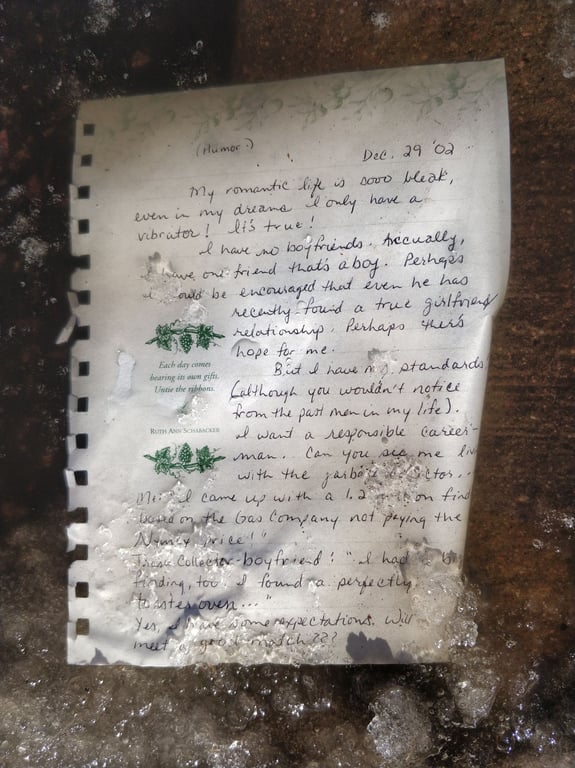 (Humor?)
Dec. 29 '02
My romantic life is sooo bleak,
even in my dreams I only have a
vibrator! It's true!
I have no boyfriends. Accually,
I have one friend that's a boy. Perhaps
I should be encouraged that even he has
recently found a true girlfriend
relationship. Perhaps there's
hope for me.
But I have my standards
(although you wouldn't notice
from the past men in my life).
I want a responsible career-
man. Can you see me
with the garbage collector...
Me: "I came up with a 1.2
based on the Gas Company not paying the
Nymex price!"
Trash Collector-boyfriend: "I had a
finding, too. I found a perfectly
toaster oven..."
Yes, I have some expectations. Will
meet a good match???
Each day comes
bearing its own gifts.
Untie the ribbons.
RUTH ANN SCHABACKER